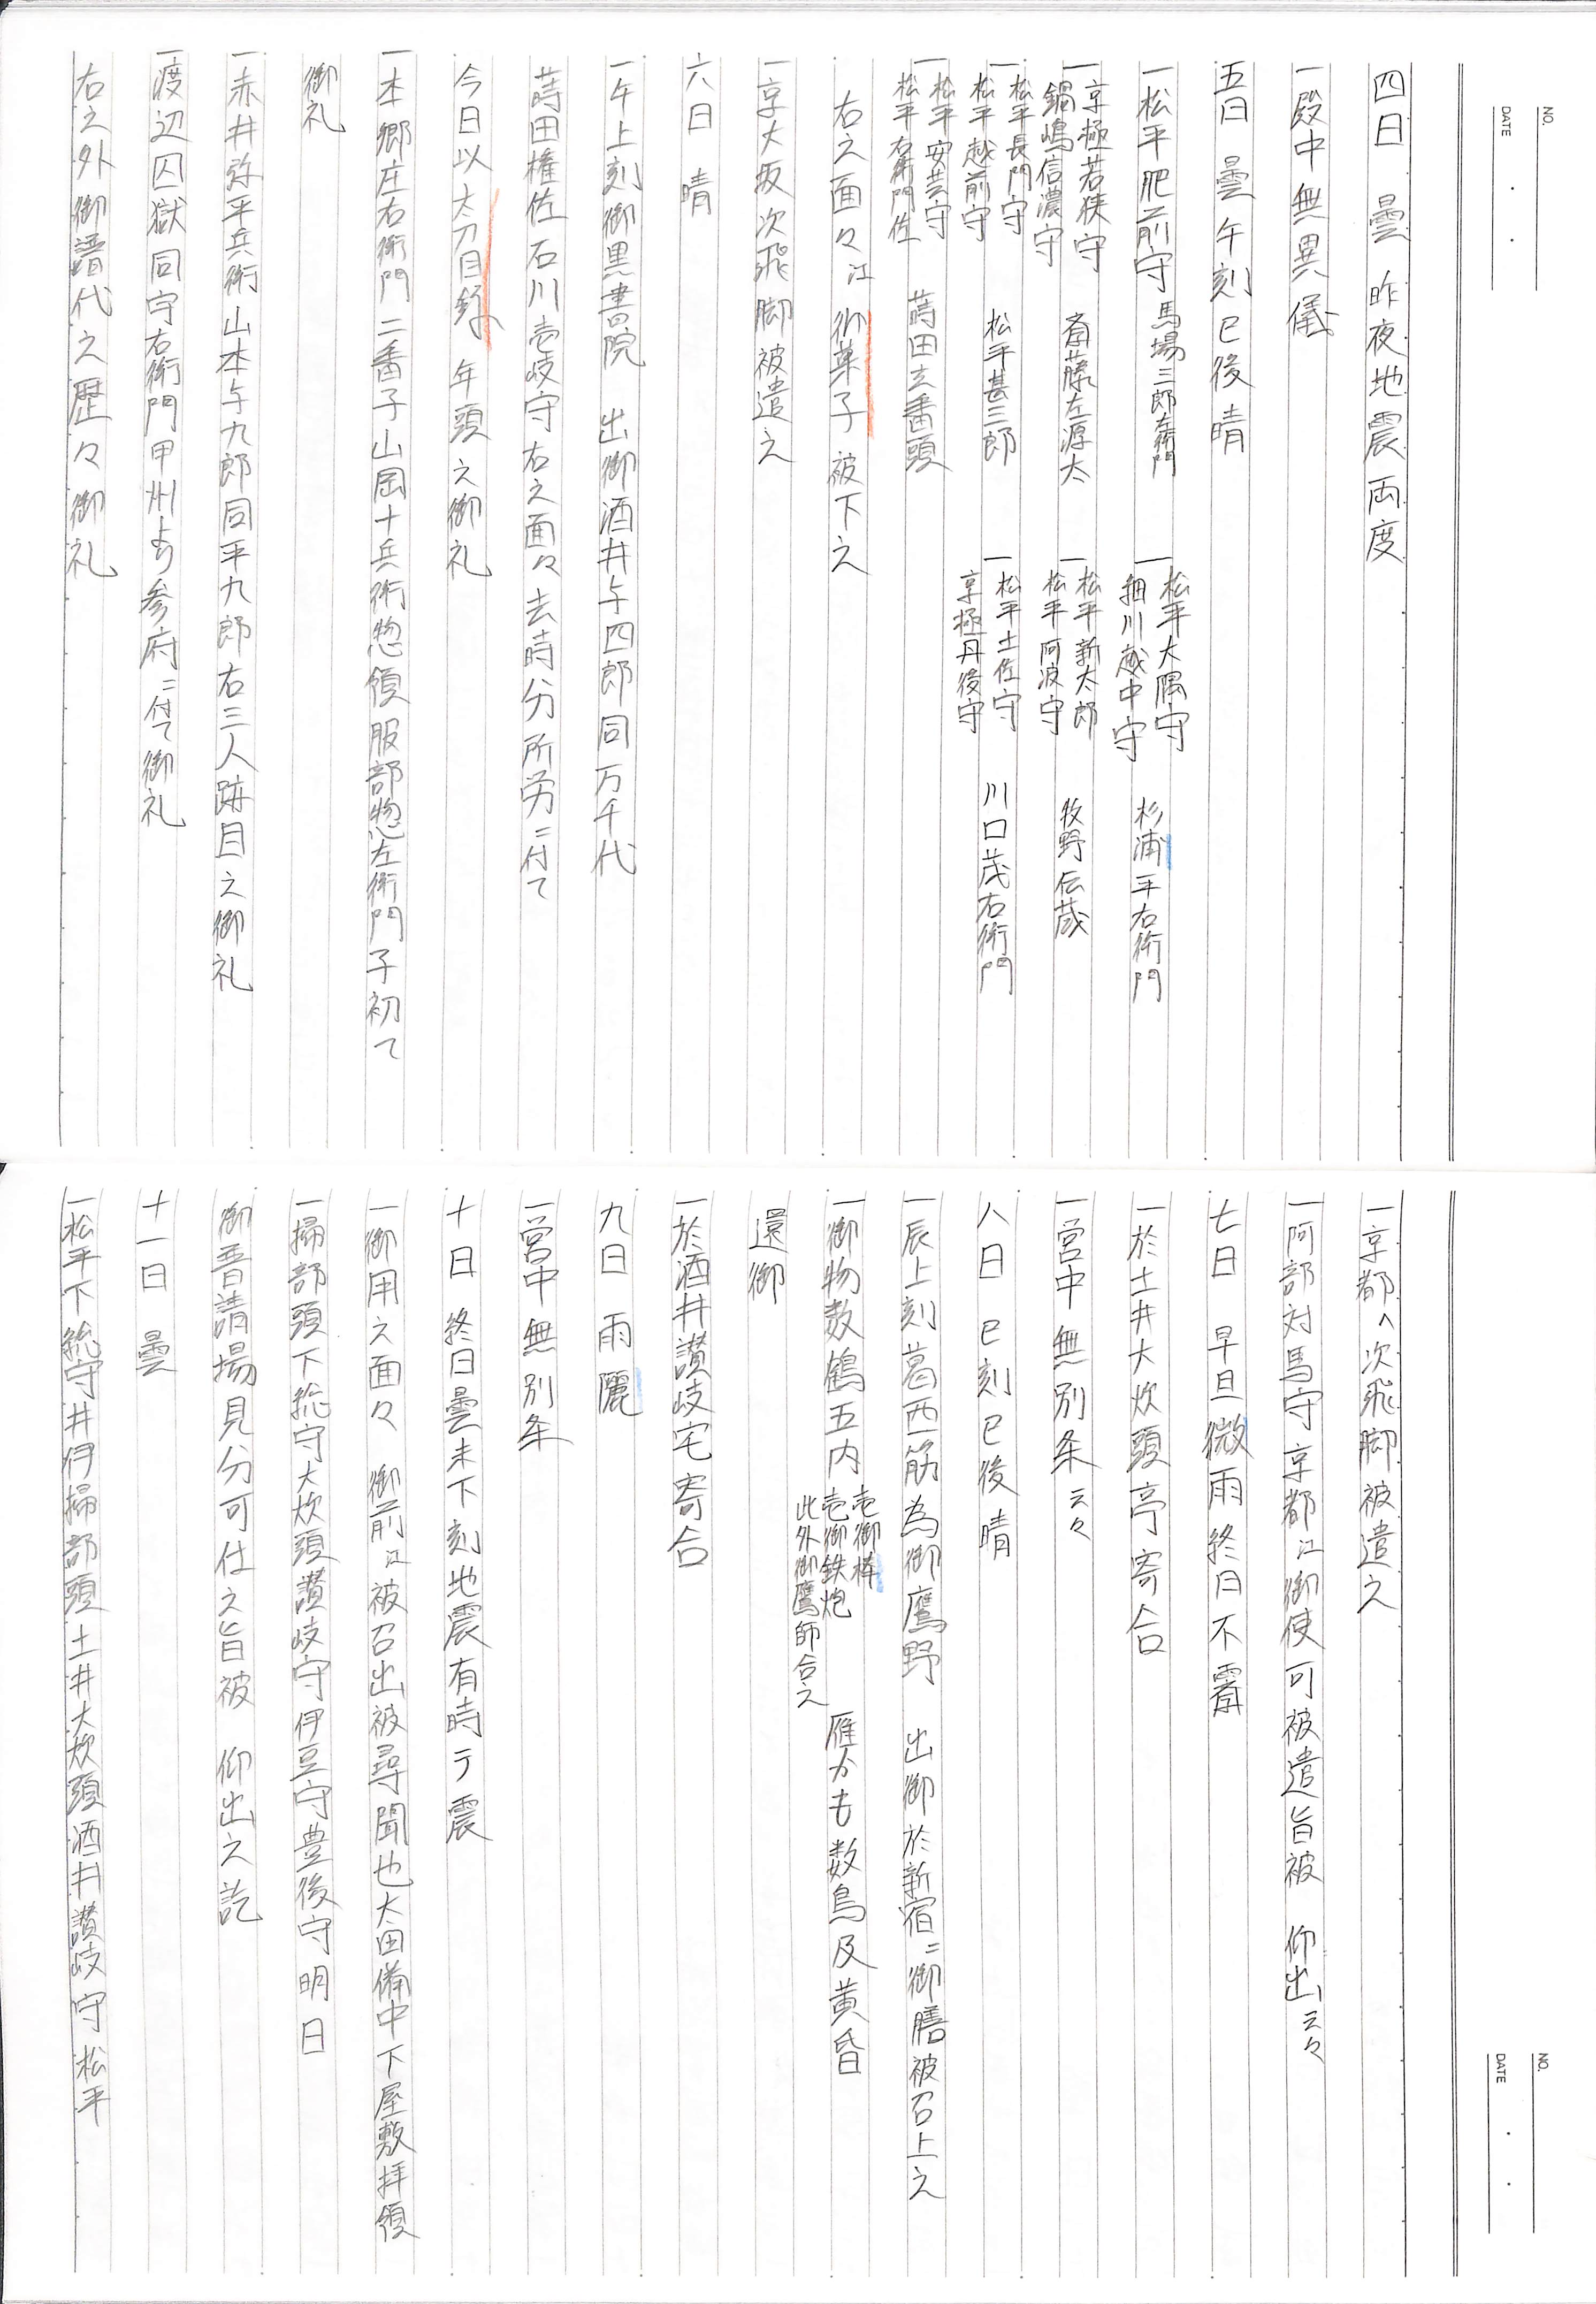 NO.
DATE
四日 曇 昨夜地震両度
一殿中無異儀
五日 曇 午刻已後晴
一松平肥前守 馬場三郎左衛門
一松平大隅守 細川越中守 杉浦平右衛門
一京極若狭守 鍋嶋信濃守 斎藤左源太
一松平新太郎 松平阿波守 牧野伝蔵
一松平長門守 松平越前守 松平甚三郎
一松平土佐守 京極丹後守 川口茂右衛門
一松平安芸守 松平右衛門佐 蒔田玄蕃頭
右之面々江 御菓子被下之
一京大坂次飛脚被遣之
六日 晴
一午上刻御黒書院 出御酒井与四郎同万千代
蒔田権佐石川壱岐守右之面々去時分所労ニ付て
今日以太刀目録 年頭之御礼
一本郷庄右衛門二番子山岡十兵衛惣領服部惣左衛門子初て
御礼
一赤井弥平兵衛山本与九郎同平九郎右三人跡目之御礼
一渡辺囚獄同守右衛門甲州より参府ニ付て御礼
右之外御譜代之歴々御礼
NO.
DATE
一京都へ次飛脚被遣之
一阿部対馬守京都江御使可被遣旨被 仰出云々
七日 早旦微雨終日不霽
一於土井大炊頭亭寄合
一営中無別条云々
八日 巳刻已後晴
一辰上刻葛西筋為御鷹野 出御於新宿ニ御膳被召上之
一御物数鶴五内 壱御拳 壱御鉄炮 此外御鷹師合之 雁かも数鳥及黄昏
還御
一於酒井讃岐宅寄合
九日 雨麗
一営中無別条
十日 終日曇未下刻地震有時テ震
一御用之面々 御前江被召出被尋聞也太田備中下屋敷拝領
一掃部頭下総守大炊頭讃岐守伊豆守豊後守明日
御普請場見分可仕之旨被 仰出之訖
十一日 曇
一松平下総守井伊掃部頭土井大炊頭酒井讃岐守松平